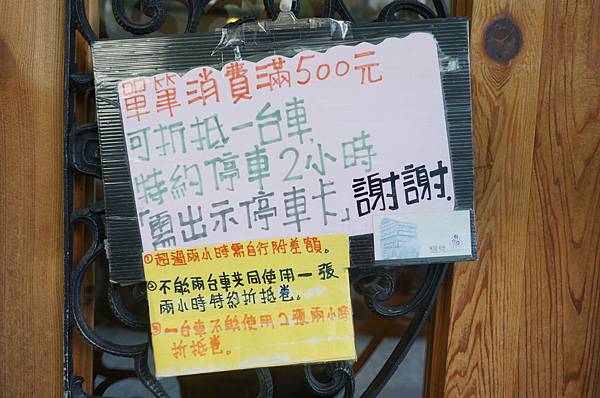 單筆消費滿500元
可折抵一台車
特約停車2小時
「需出示停車卡」謝謝.
①超過兩小時需自行附差額。
②不能兩台車共同使用一張
兩小時特約折抵卷。
③一台車不能使用2張兩小時
折抵卷。